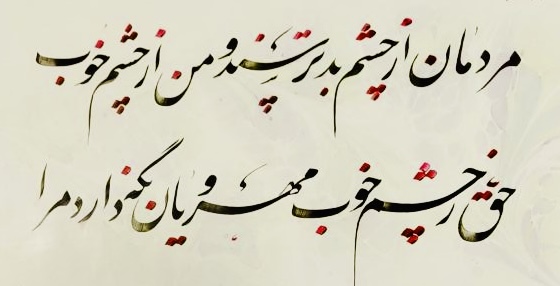 مردمان از چشم بد ترسند و من از چشم خوب
حق ز چشم خوب مهرویان نگهدارد مرا